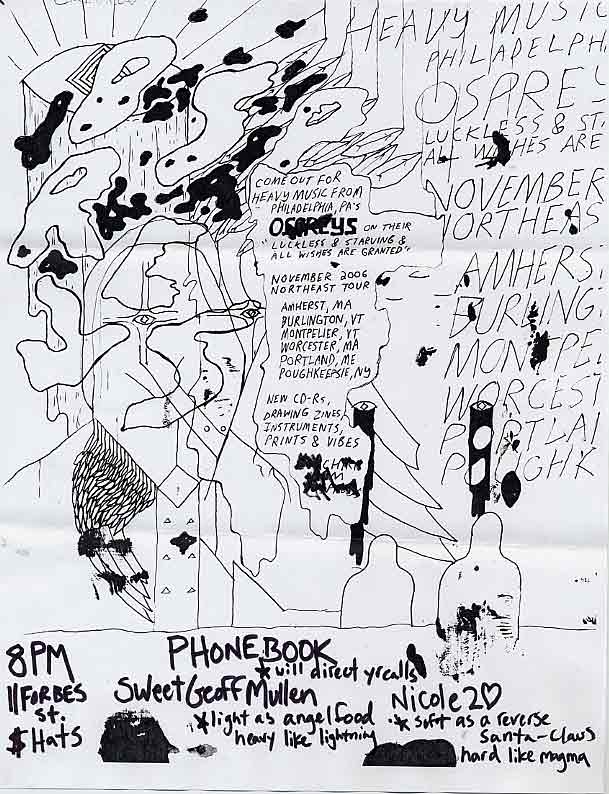 HEAVY MUSIC
PHILADELPH
OSPREY
LUCKLESS & ST
ALL WISHES ARE
NOVEMBER
NORTHEAS
AMHERST
BURLING
MONTPEL
WORCEST
PORTLAN
POUGHK
COME OUT FOR
HEAVY MUSIC FROM
PHILADELPHIA, PA'S
OSPREYS ON THEIR
"LUCKLESS & STARVING &
ALL WISHES ARE GRANTED"
NOVEMBER 2006
NORTHEAST TOUR
AMHERST, MA
BURLINGTON, VT
MONTPELIER, VT
WORCESTER, MA
PORTLAND, ME
POUGHKEEPSIE, NY
NEW CD-RS,
DRAWING ZINES,
INSTRUMENTS,
PRINTS & VIBES
8PM
11 FORBES
st.
$ Hats
PHONEBOOK
* will direct yr calls
Sweet Geoff Mullen
* light as angel food
heavy like lightning
Nicole 2♡
* soft as a reverse
Santa-Claus
hard like magma